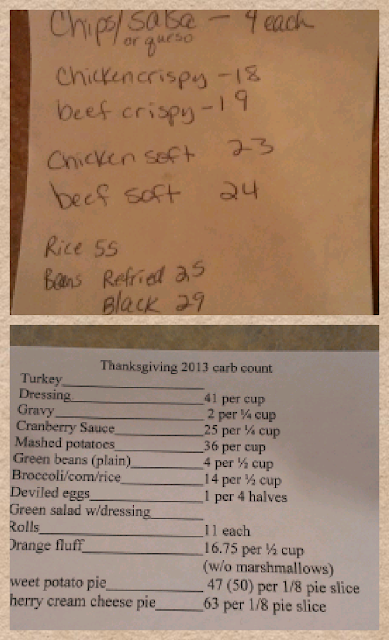 Chips/Salsa - 4 each
or queso
Chicken crispy - 18
beef crispy - 19
Chicken soft 23
beef soft 24
Rice 55
Beans Refried 25
Black 29
Thanksgiving 2013 carb count
Turkey
Dressing 41 per cup
Gravy 2 per ¼ cup
Cranberry Sauce 25 per ¼ cup
Mashed potatoes 36 per cup
Green beans (plain) 4 per ½ cup
Broccoli/corn/rice 14 per ½ cup
Deviled eggs 1 per 4 halves
Green salad w/dressing
Rolls 11 each
Orange fluff 16.75 per ½ cup
(w/o marshmallows)
weet potato pie 47 (50) per 1/8 pie slice
herry cream cheese pie 63 per 1/8 pie slice